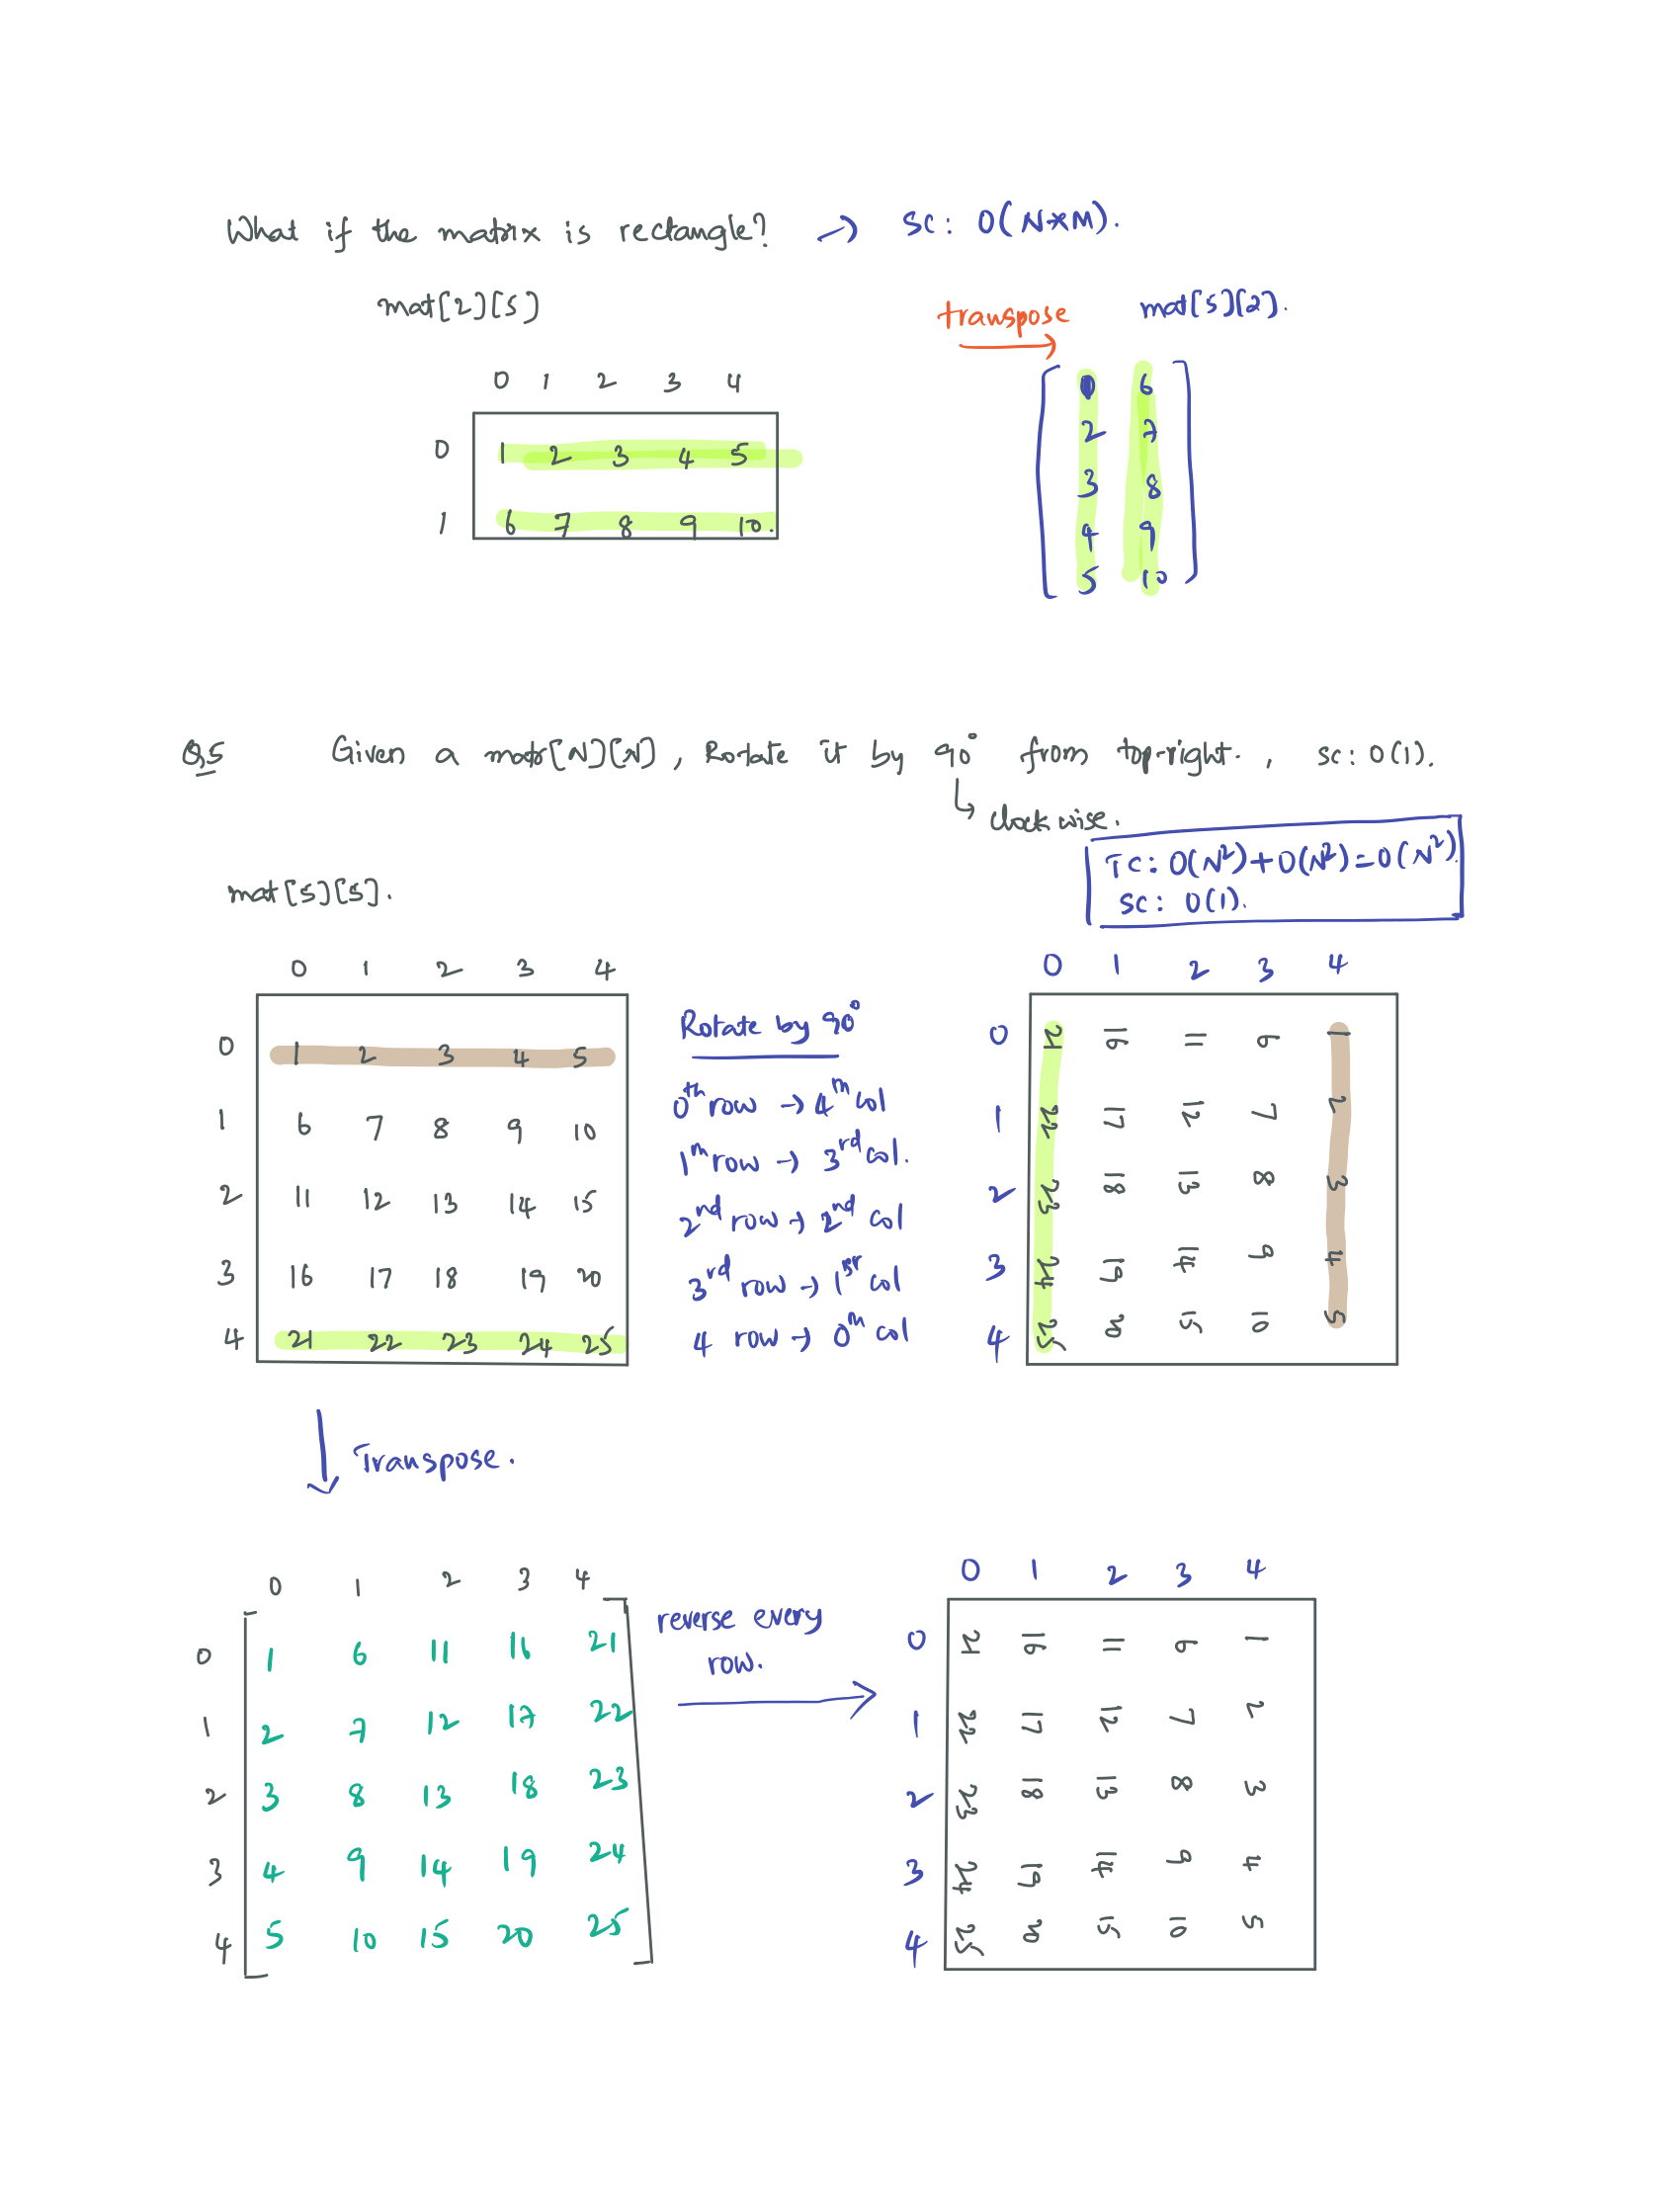 What if the matrix is rectangle? → SC: O(N*M).
mat[2][5]
transpose → mat[5][2].
0 1 2 3 4
0 1 2 3 4 5
1 6 7 8 9 10.
6
2 7
3 8
4 9
5 10
Q5 Given a mat[N][N], Rotate it by 90° from top-right., SC: O(1).
↳ clockwise.
TC: O(N²)+O(N²)=O(N²).
SC: O(1).
mat[5][5].
0 1 2 3 4
0 1 2 3 4 5
1 6 7 8 9 10
2 11 12 13 14 15
3 16 17 18 19 20
4 21 22 23 24 25
Rotate by 90°
0th row → 4th col
1th row → 3rd col.
2nd row → 2nd col
3rd row → 1st col
4 row → 0th col
0 1 2 3 4
0 21 16 11 6 1
1 22 17 12 7 2
2 23 18 13 8 3
3 24 19 14 9 4
4 25 20 15 10 5
↓ Transpose.
0 1 2 3 4
0 1 6 11 16 21
1 2 7 12 17 22
2 3 8 13 18 23
3 4 9 14 19 24
4 5 10 15 20 25
reverse every
row.
→
0 1 2 3 4
0 21 16 11 6 1
1 22 17 12 7 2
2 23 18 13 8 3
3 24 19 14 9 4
4 25 20 15 10 5